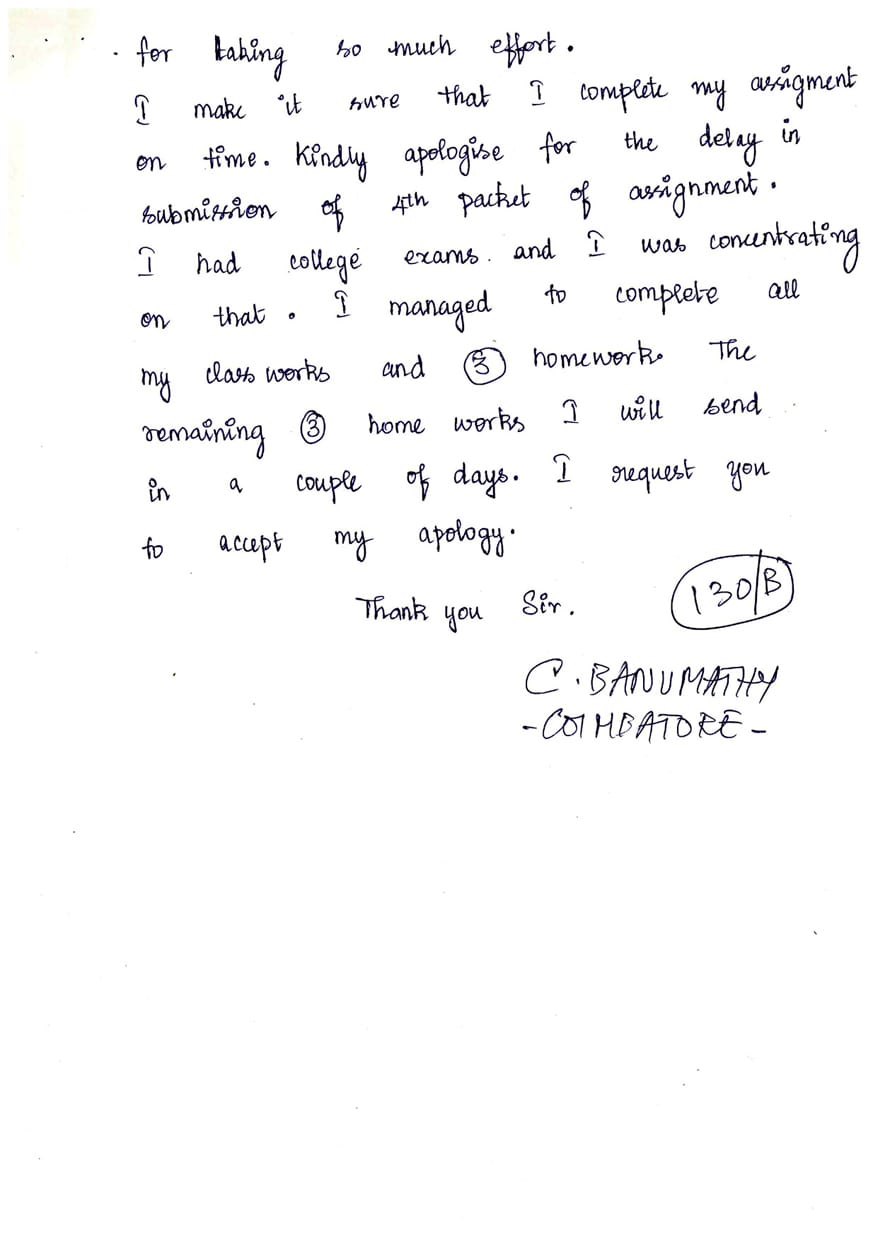 for taking so much effort.
I make it sure that I complete my assigment
on time. Kindly apologise for the delay in
submission of 4th packet of assignment.
I had college exams. and I was concentrating
on that. I managed to complete all
my class works and 3 homework. The
remaining 3 home works I will send
in a couple of days. I request you
to accept my apology.
Thank you Sir.
130/B
C. BANUMATHY
- COIMBATORE -